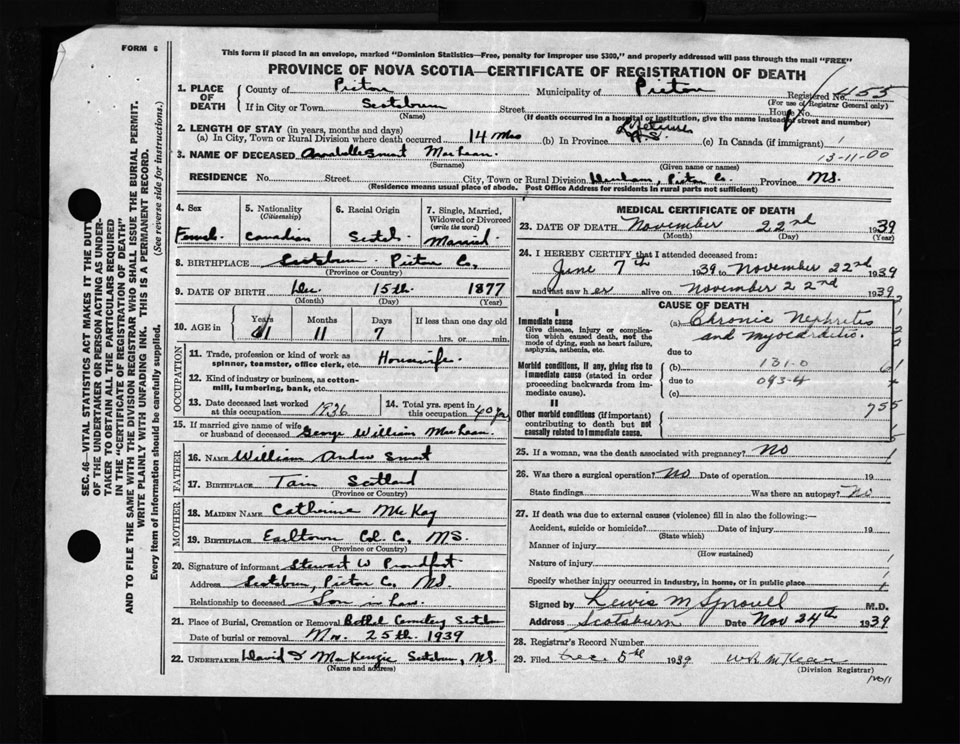 FORM 6
This form if placed in an envelope, marked "Dominion Statistics—Free, penalty for improper use $300," and properly addressed will pass through the mail "FREE"
PROVINCE OF NOVA SCOTIA—CERTIFICATE OF REGISTRATION OF DEATH
SEC. 46. VITAL STATISTICS ACT MAKES IT THE DUTY
OF THE UNDERTAKER OR PERSON ACTING AS UNDER-
TAKER TO OBTAIN ALL THE PARTICULARS REQUIRED
IN THE "CERTIFICATE OF REGISTRATION OF DEATH"
AND TO FILE THE SAME WITH THE DIVISION REGISTRAR WHO SHALL ISSUE THE BURIAL PERMIT.
WRITE PLAINLY WITH UNFADING INK. THIS IS A PERMANENT RECORD.
Every item of information should be carefully supplied. (See reverse side for instructions.)
1. PLACE OF DEATH
County of Pictou Municipality of Pictou Registered No. 455
(For use of Registrar General only)
If in City or Town Scotsburn Street House No.
(Name) (If death occurred in a hospital or institution, give the name instead of street and number)
2. LENGTH OF STAY (in years, months and days)
(a) In City, Town or Rural Division where death occurred 14 Mos (b) In Province Lifetime N.S. (c) In Canada (if immigrant)
3. NAME OF DECEASED Annabelle Smart MacLean 13-11-00
(Surname) (Given name or names)
RESIDENCE No. Street City, Town or Rural Division Durham, Pictou Co. Province N.S.
(Residence means usual place of abode. Post Office Address for residents in rural parts not sufficient)
4. Sex Female
5. Nationality (Citizenship) Canadian
6. Racial Origin Scotch
7. Single, Married, Widowed or Divorced (write the word) Married
8. BIRTHPLACE Scotsburn Pictou Co,
(Province or Country)
9. DATE OF BIRTH Dec. 15th 1877
(Month) (Day) (Year)
10. AGE in Years Months Days If less than one day old
61 11 7 hrs. or min.
OCCUPATION
11. Trade, profession or kind of work as spinner, teamster, office clerk, etc. Housewife.
12. Kind of industry or business, as cotton-mill, lumbering, bank, etc.
13. Date deceased last worked at this occupation 1936
14. Total yrs. spent in this occupation 40 yrs
15. If married give name of wife or husband of deceased George William MacLean.
FATHER
16. NAME William Andrew Smart
17. BIRTHPLACE Tain Scotland
(Province or Country)
MOTHER
18. MAIDEN NAME Catherine McKay
19. BIRTHPLACE Earltown Col. Co, N.S.
(Province or Country)
20. Signature of informant Stewart W Proudfoot
Address Scotsburn, Pictou Co, N.S.
Relationship to deceased Son in law.
21. Place of Burial, Cremation or Removal Bethel Cemetery
Date of burial or removal Nov. 25th. 1939
22. UNDERTAKER David MacKenzie Scotsburn, N.S.
(Name and address)
MEDICAL CERTIFICATE OF DEATH
23. DATE OF DEATH November 22nd 1939
(Month) (Day) (Year)
24. I HEREBY CERTIFY that I attended deceased from:
June 7th 1939 to November 22nd 1939
and last saw her alive on November 22nd 1939
CAUSE OF DEATH
I
Immediate cause
Give disease, injury or complication which caused death, not the mode of dying, such as heart failure, asphyxia, asthenia, etc.
(a) Chronic Nephritis and myocarditis.
due to
Morbid conditions, if any, giving rise to immediate cause (stated in order proceeding backwards from immediate cause).
(b) 131-0
due to 093-4
(c)
II
Other morbid conditions (if important) contributing to death but not causally related to immediate cause.
755
25. If a woman, was the death associated with pregnancy? No
26. Was there a surgical operation? No Date of operation 19
State findings Was there an autopsy? No
27. If death was due to external causes (violence) fill in also the following:—
Accident, suicide or homicide? Date of injury 19
(State which)
Manner of injury
(How sustained)
Nature of injury
Specify whether injury occurred in industry, in home, or in public place
Signed by Lewis M Sproull M.D.
Address Scotsburn Date Nov 24th 1939
28. Registrar's Record Number
29. Filed Dec. 5th 1939
(Division Registrar)